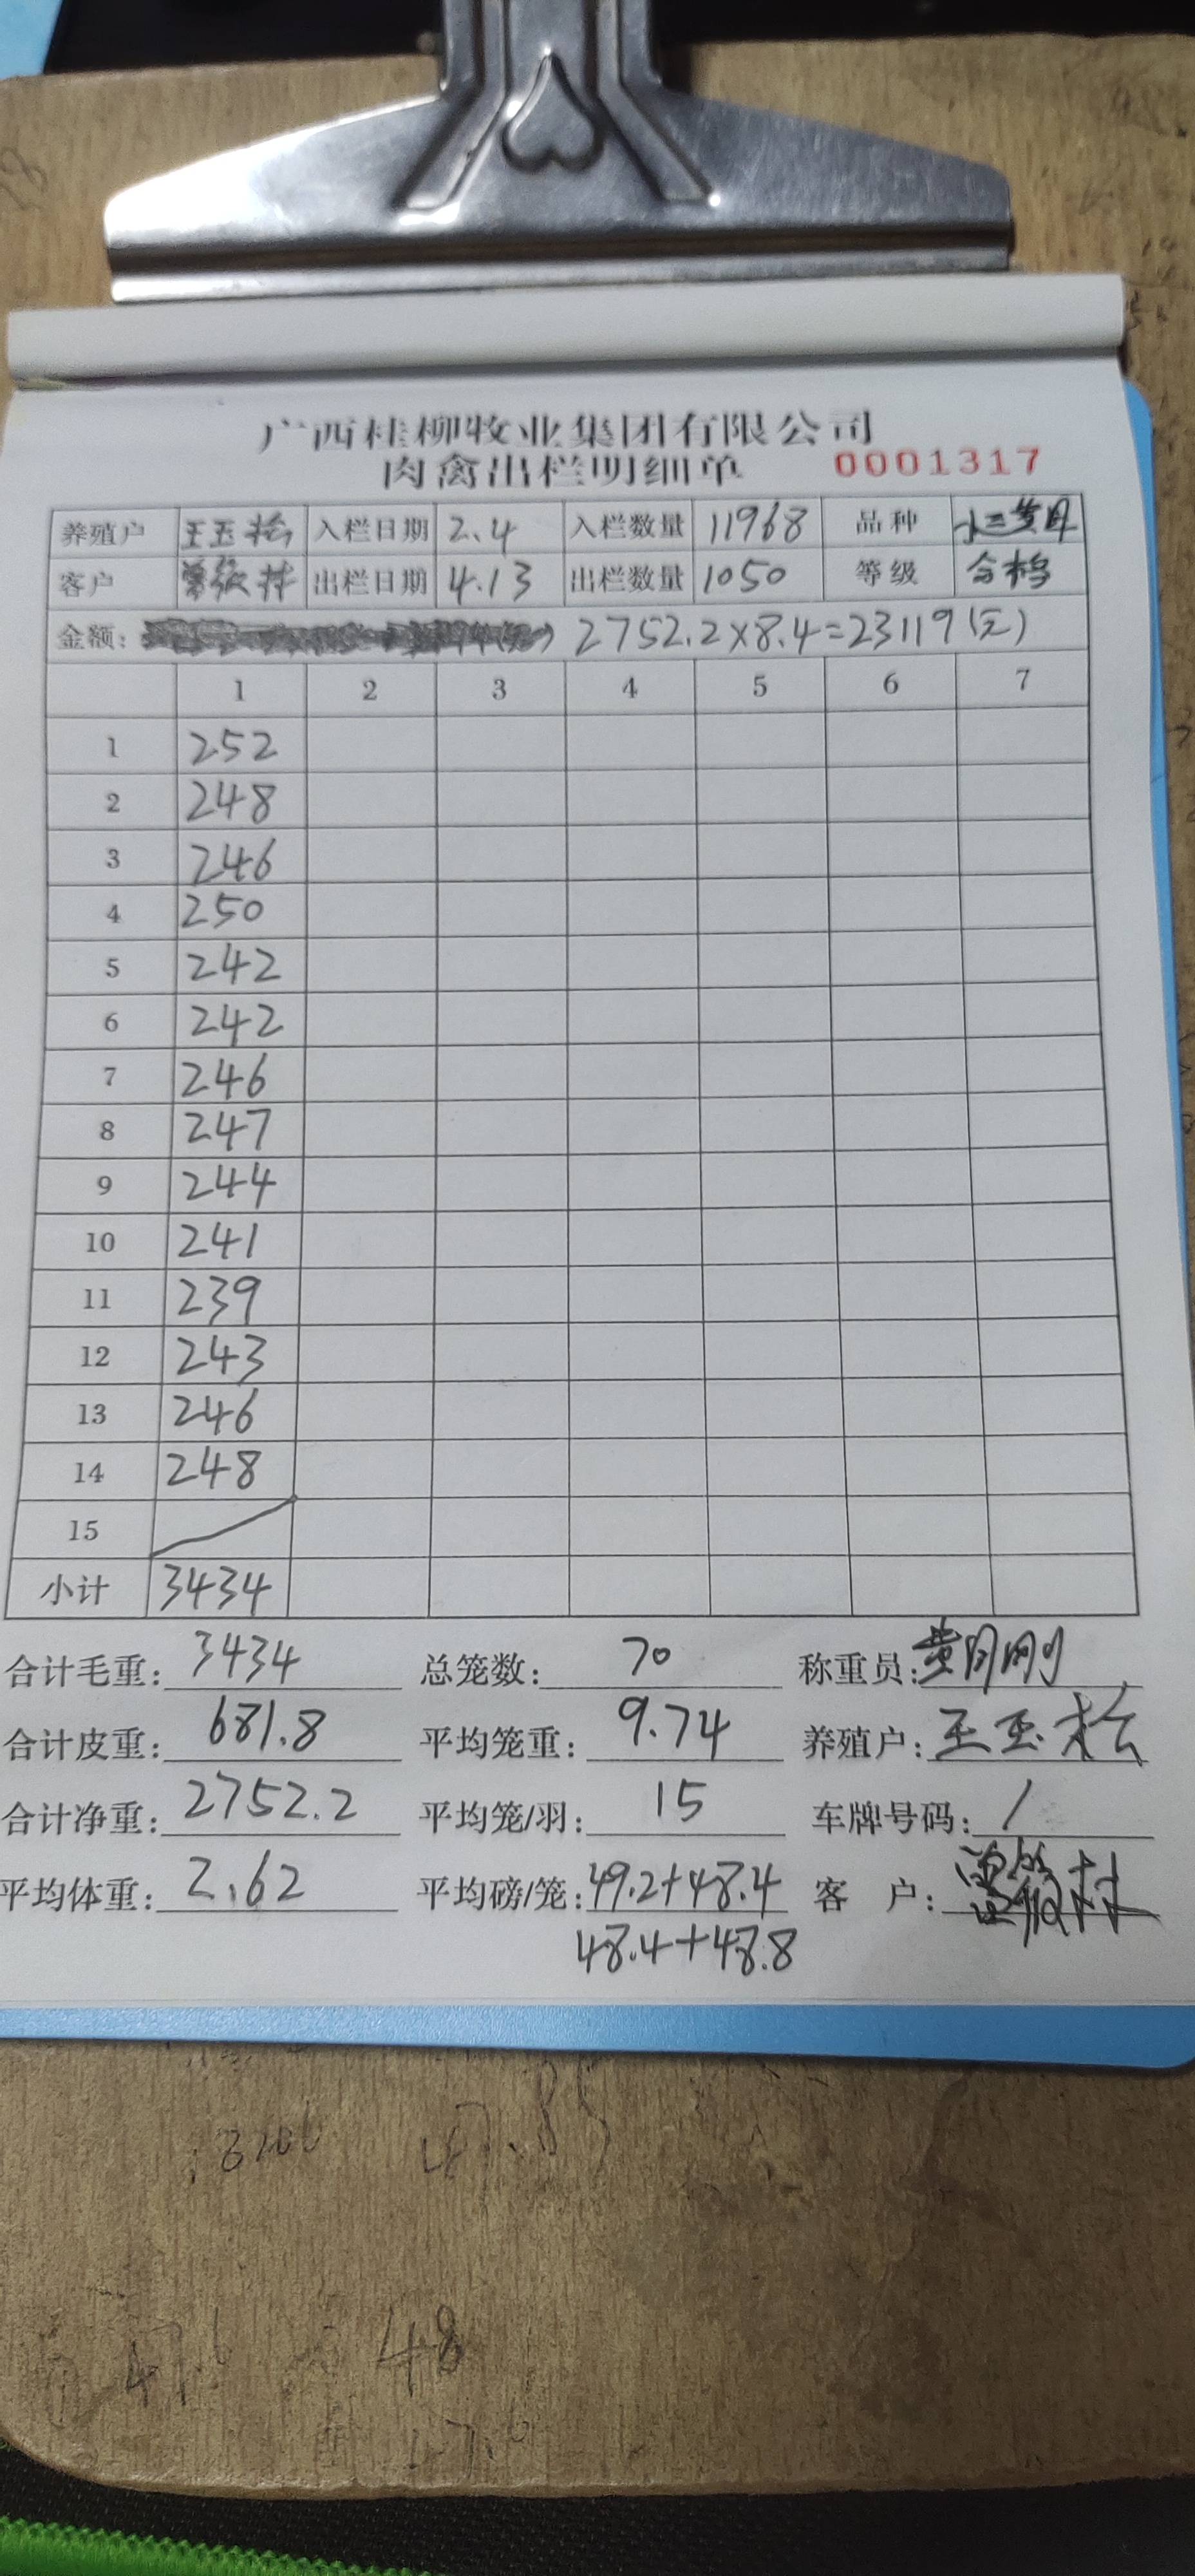 广西桂柳牧业集团有限公司
肉禽出栏明细单 0001317
养殖户 王玉松 入栏日期 2.4 入栏数量 11968 品种 小三黄母
客户 出栏日期 4.13 出栏数量 1050 等级 合格
金额: 2752.2×8.4=23119(元)
1 2 3 4 5 6 7
1 252
2 248
3 246
4 250
5 242
6 242
7 246
8 247
9 244
10 241
11 239
12 243
13 246
14 248
15
小计 3434
合计毛重: 3434 总笼数: 70 称重员: 黄月刚
合计皮重: 681.8 平均笼重: 9.74 养殖户: 王玉松
合计净重: 2752.2 平均笼/羽: 15 车牌号码: /
平均体重: 2.62 平均磅/笼: 49.2+48.4 客 户:
48.4+48.8
48